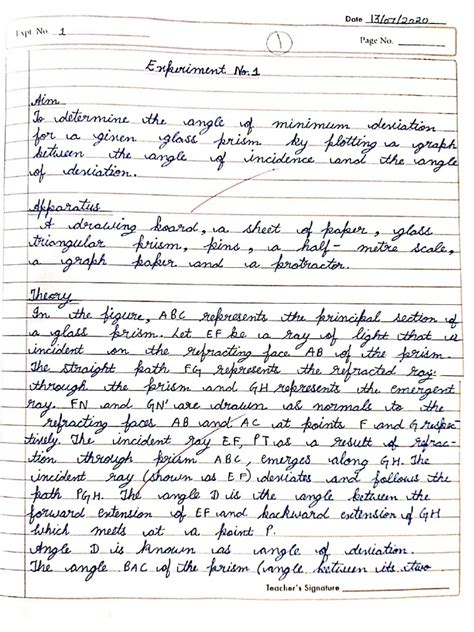 Date 13/07/2020
Expt. No. 1
Page No.
1
Experiment No.1
Aim
To determine the angle of minimum deviation
for a given glass prism by plotting a graph
between the angle of incidence and the angle
of deviation.
Apparatus
A drawing board, a sheet of paper, glass
triangular prism, pins, a half-metre scale,
a graph paper and a protractor.
Theory
In the figure, ABC represents the principal section of
a glass prism. Let EF be a ray of light that is
incident on the refracting face AB of the prism.
The straight path FG represents the refracted ray
through the prism and GH represents the emergent
ray. FN and GN' are drawn as normals to the
refracting faces AB and AC at points F and G respec-
tively. The incident ray EF, PT as a result of refrac-
tion through prism ABC, emerges along GH. The
incident ray (shown as EF) deviates and follows the
path PGH. The angle D is the angle between the
forward extension of EF and backward extension of GH
which meets at a point P.
Angle D is known as angle of deviation.
The angle BAC of the prism (angle between its two
Teacher's Signature